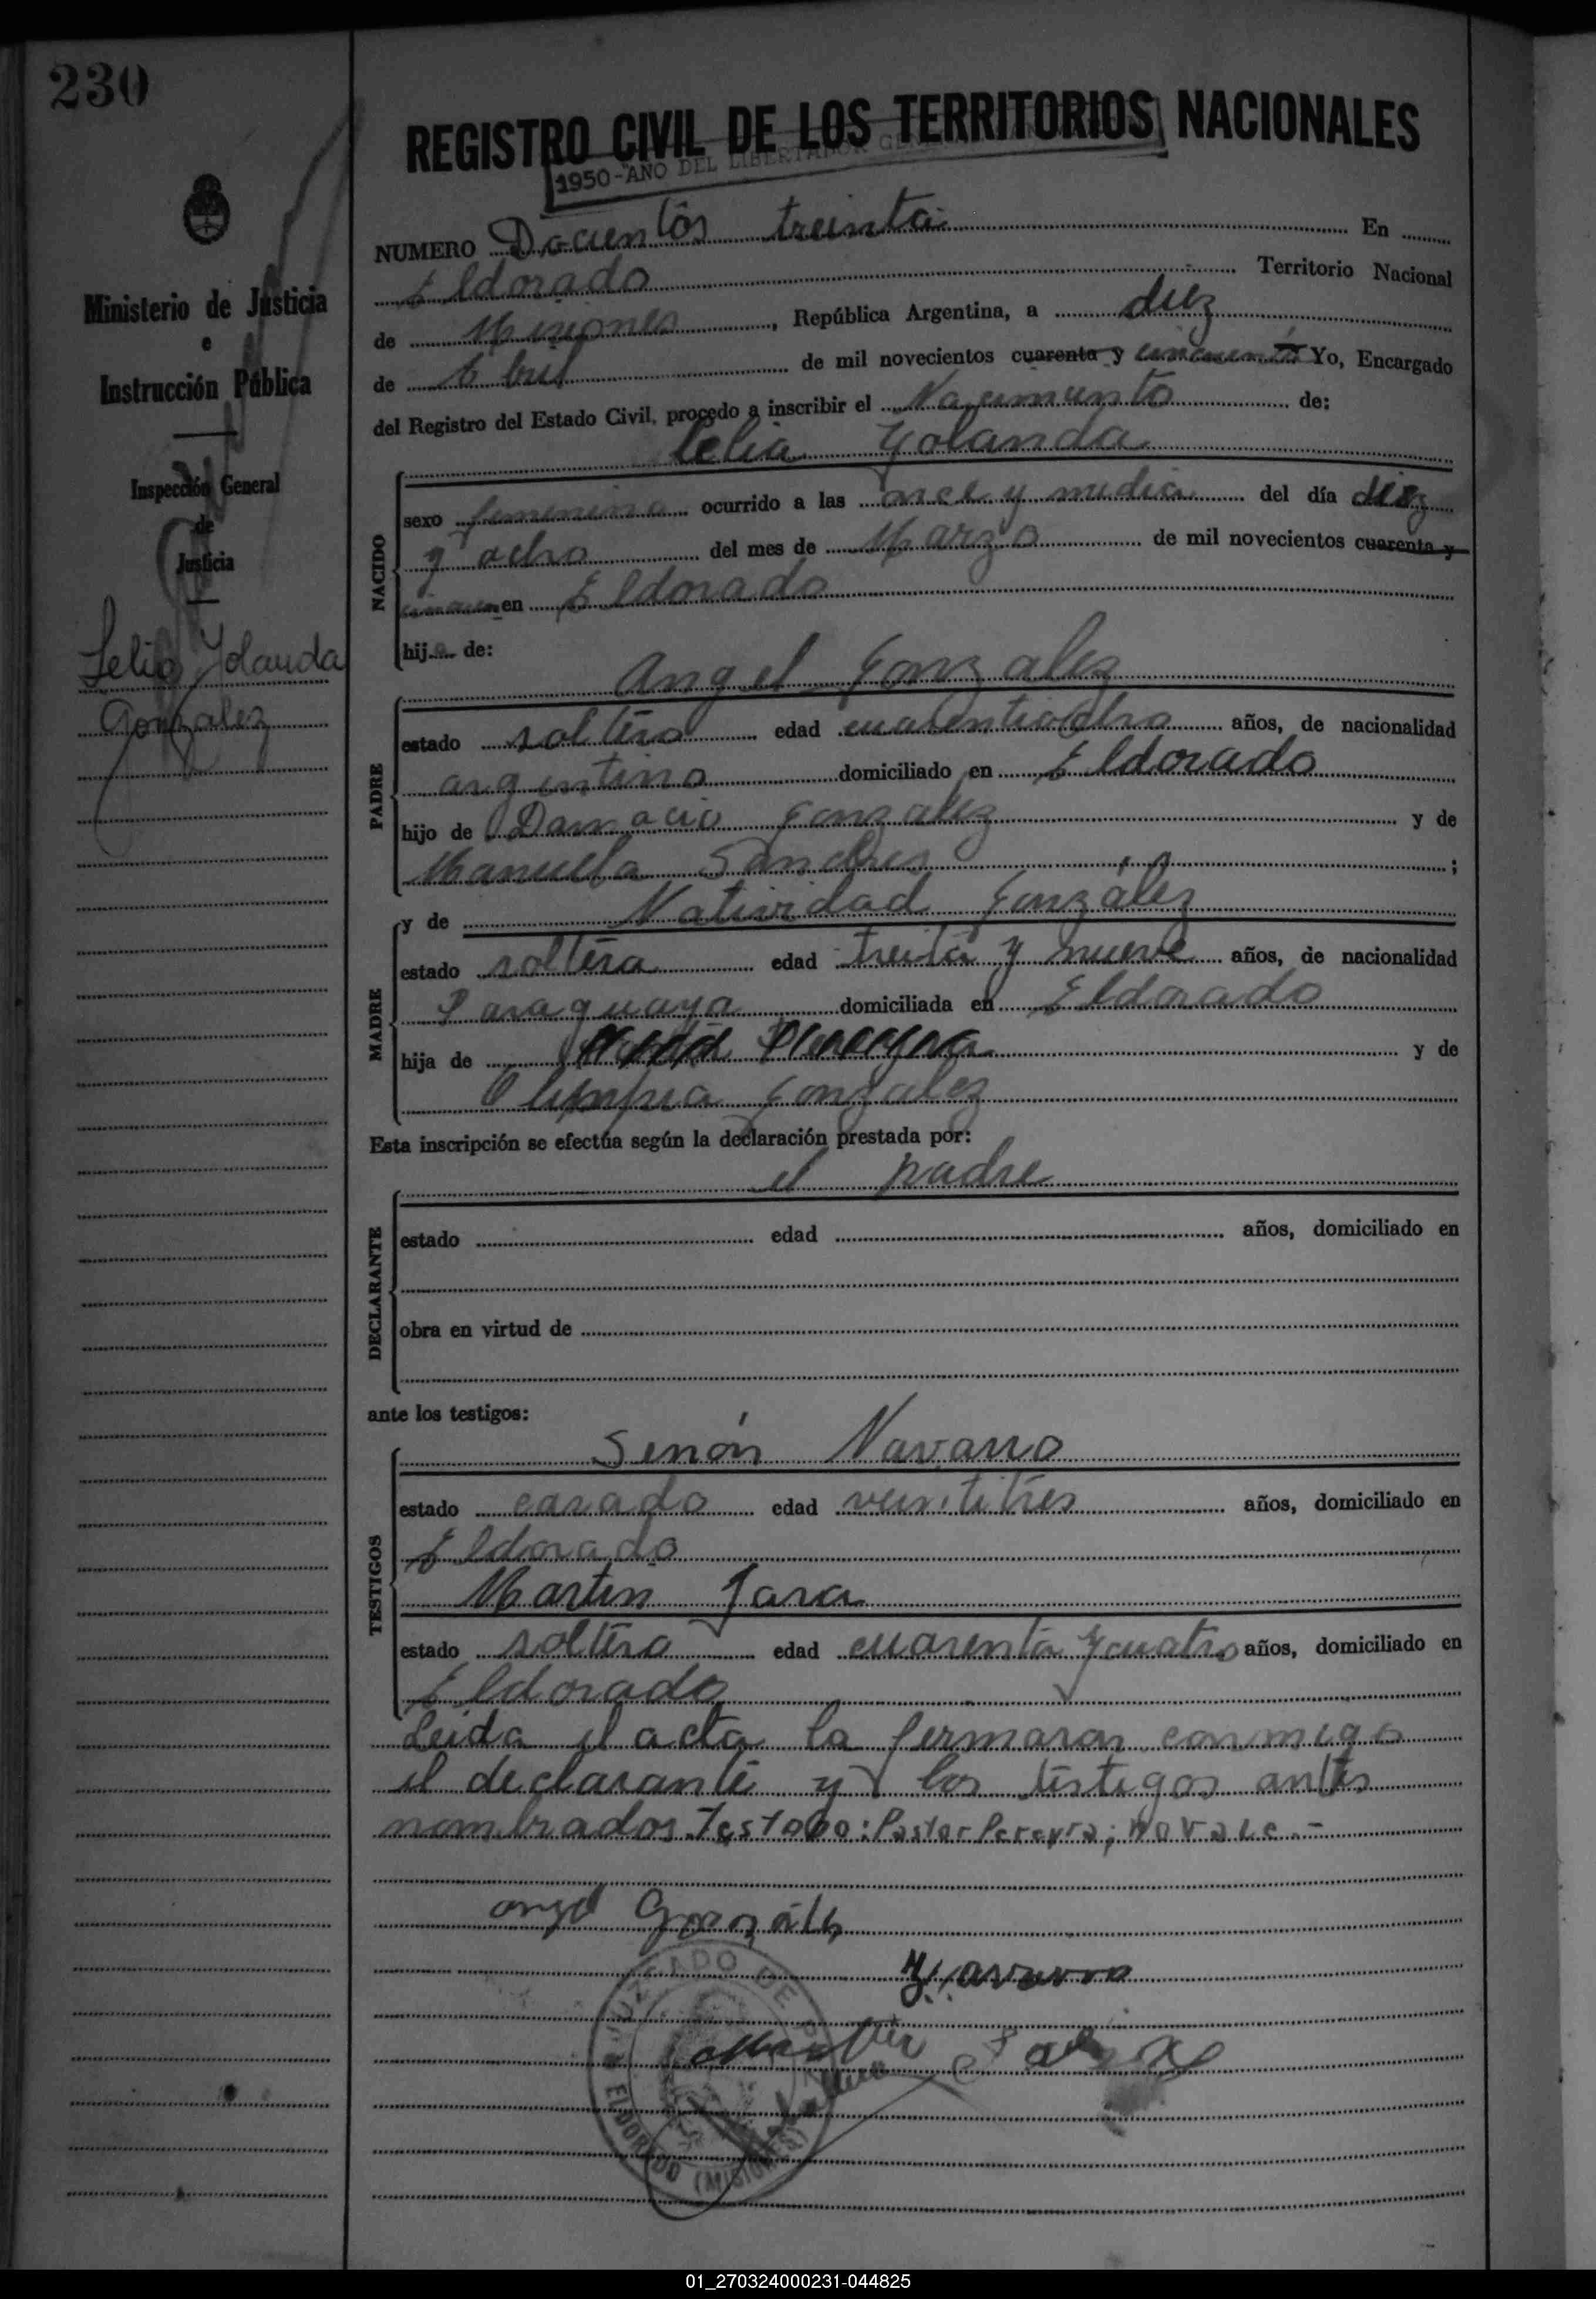 230
REGISTRO CIVIL DE LOS TERRITORIOS NACIONALES
1950-"AÑO DEL LIBERTADOR GENERAL
NUMERO Docientos treinta En
Eldorado Territorio Nacional
de Misiones, República Argentina, a diez
de Abril de mil novecientos cuarenta y cincuenta Yo, Encargado
del Registro del Estado Civil, procedo a inscribir el Nacimiento de:
Lelia Yolanda
Ministerio de Justicia
e
Instrucción Pública
Inspección General
de
Justicia
Lelia Yolanda
Gonzalez
NACIDO
sexo femenino ocurrido a las once y media del día diez
y ocho del mes de Marzo de mil novecientos cuarenta y
en Eldorado
hija de:
Angel Gonzalez
PADRE
estado soltero edad cuarentiocho años, de nacionalidad
argentino domiciliado en Eldorado
hijo de Damacio Gonzalez y de
Manuela Sanches;
y de Natividad González
MADRE
estado soltera edad treita y nueve años, de nacionalidad
Paraguaya domiciliada en Eldorado
hija de y de
Olimpia Gonzalez
Esta inscripción se efectúa según la declaración prestada por:
el padre
DECLARANTE
estado edad años, domiciliado en
obra en virtud de
ante los testigos:
Senón Navarro
TESTIGOS
estado casado edad veintitres años, domiciliado en
Eldorado
Martin Jara
estado soltero edad cuarenta y cuatro años, domiciliado en
Eldorado
Leida el acta la firmaran conmigo
el declarante y los testigos antes
nombrados. Testado: Pastor Pereyra; no vale.-
angel González
ELDORADO (MISIONES)
01_270324000231-044825